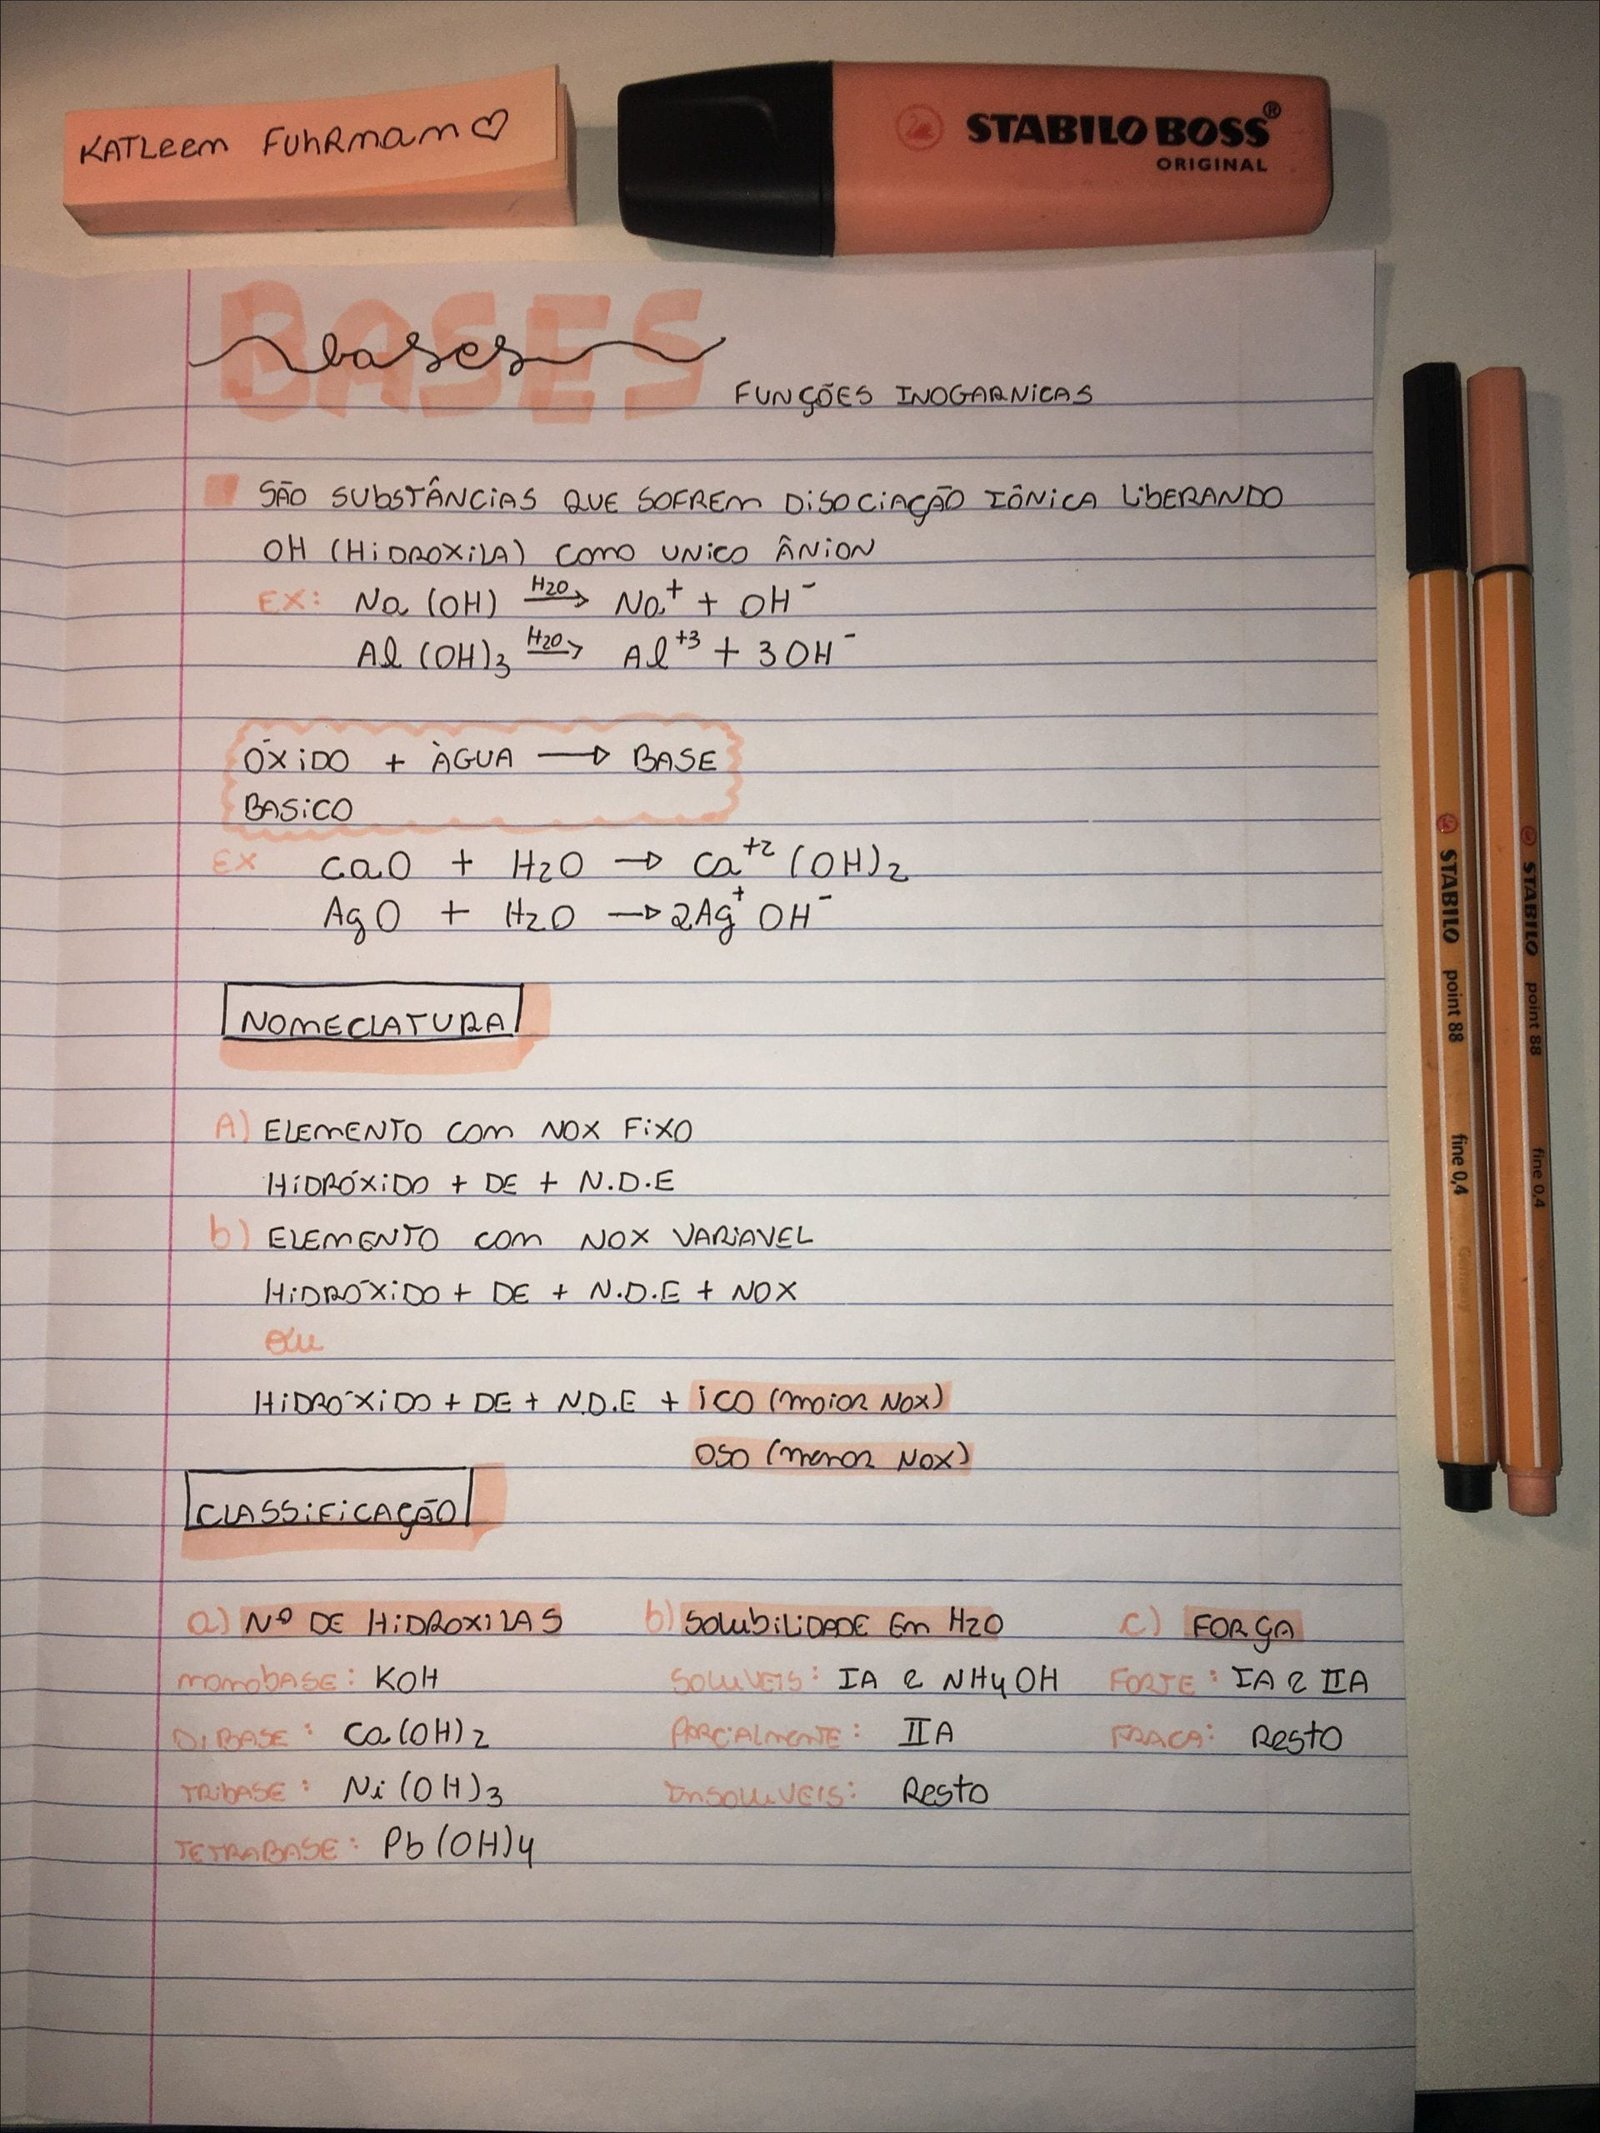 KATLeem FuhRmam♡
STABILO BOSS®
ORIGINAL
BASES
bases
FUNÇÕES INOGARNICAS
SÃO SUBSTÂNCIAS QUE SOFREM DISOCIAÇÃO IÔNICA LIBERANDO
OH (HIDROXILA) COMO UNICO ÂNION
EX: Na (OH) H2O→ Na⁺ + OH⁻
Al (OH)3 H2O→ Al⁺³ + 3OH⁻
ÓXIDO + ÀGUA → BASE
BASICO
EX CaO + H2O → Ca⁺² (OH)2
AgO + H2O → 2Ag⁺ OH⁻
NOMECLATURA
A) ELEMENTO COM NOX FIXO
HIDRÓXIDO + DE + N.D.E
b) ELEMENTO COM NOX VARIAVEL
HIDRÓXIDO + DE + N.D.E + NOX
ou
HIDRÓXIDO + DE + N.D.E + ICO (maior NOX)
OSO (menor NOX)
CLASSIFICAÇÃO
a) Nº DE HIDROXILAS b) SOLUBILIDADE Em H2O c) FORÇA
MONOBASE: KOH SOLUVEIS: IA e NH4OH FORTE: IA e IIA
DIBASE: Ca(OH)2 PARCIALMENTE: IIA FRACA: Resto
TRIBASE: Ni(OH)3 INSOLUVEIS: Resto
TETRABASE: Pb(OH)4
STABILO point 88 fine 0,4
STABILO point 88 fine 0,4